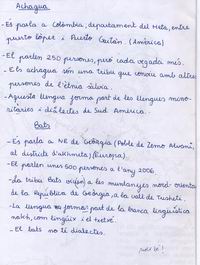 Achagua
- Es parla a Colòmbia, departament del Meta, entre
puerto López i Puerto Gaitán. (Amèrica)
- El parlen 250 persones, però cada vegada més.
- Els achagua són una tribu que conviu amb altres
persones de l'ètnia sàliva.
- Aquesta llengua forma part de les llengües mino-
ritàries i dialectes de Sud Amèrica.
Bats
- Es parla a NE de Geòrgia (Poble de Zemo Alvani,
al districte d'akhmeta) (Europa).
- El parlen uns 500 persones a l'any 2006.
- La tribu Bats a les muntanyes nord-orientals
de la República de Geòrgia, a la vall de Tusheti.
- La llengua forma part de la branca lingüística
nakh, com l'ingúix i el txetxè.
- El bats no té dialectes.
molt bé!